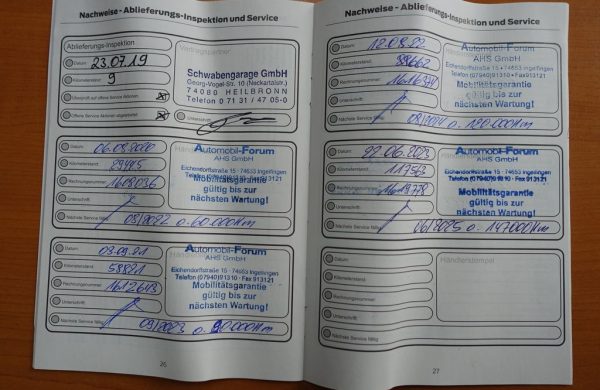 Nachweise - Ablieferungs-Inspektion und Service
Ablieferungs-Inspektion
Datum 23.07.19
Kilometerstand 9
Unterschrift
Schwabengarage GmbH
Georg-Vogel-Str. 10 (Neckartalstr.)
74080 HEILBRONN
Telefon 0 71 31 / 47 05-0
Datum 06.08.2020
Kilometerstand 29445
Rechnungsnummer 1608036
Unterschrift
Nächste Service fällig 08/2022 o. 60.000Km
Automobil-Forum
AHS GmbH
Eichendorffstraße 15 · 74653 Ingelfingen
Telefon (07940)91310 · Fax 913121
Mobilitätsgarantie
gültig bis zur
nächsten Wartung!
Datum 03.09.21
Kilometerstand 58821
Rechnungsnummer 1612643
Unterschrift
Nächste Service fällig 09/2023 o. 90.000Km
Automobil-Forum
AHS GmbH
Eichendorffstraße 15 · 74653 Ingelfingen
Telefon (07940)91310 · Fax 913121
Mobilitätsgarantie
gültig bis zur
nächsten Wartung!
26
Nachweise - Ablieferungs-Inspektion und Service
Datum
Kilometerstand
Rechnungsnummer
Unterschrift
Nächste Service fällig o. 120.000Km
Automobil-Forum
AHS GmbH
Eichendorffstraße 15 · 74653 Ingelfingen
Telefon (07940)91310 · Fax 913121
Mobilitätsgarantie
gültig bis zur
nächsten Wartung!
Datum 22.06.2023
Kilometerstand 117563
Rechnungsnummer 1619778
Unterschrift
Nächste Service fällig 06/2025 o. 147000Km
Automobil-Forum
AHS GmbH
Eichendorffstraße 15 · 74653 Ingelfingen
Telefon (07940)91310 · Fax 913121
Mobilitätsgarantie
gültig bis zur
nächsten Wartung!
Datum
Kilometerstand
Rechnungsnummer
Unterschrift
Nächste Service fällig
Händlerstempel
27